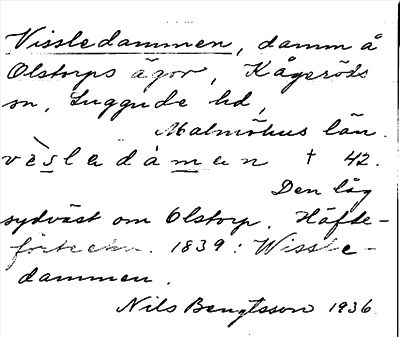 Vissledammen, damm å
Olstorps ägor, Kågeröds
sn, Luggude hd,
Malmöhus län.
vèsladàman † 42.
Den låg
sydväst om Olstorp. Häfde-
förteckn. 1839: Wissle-
dammen.
Nils Bengtsson 1936